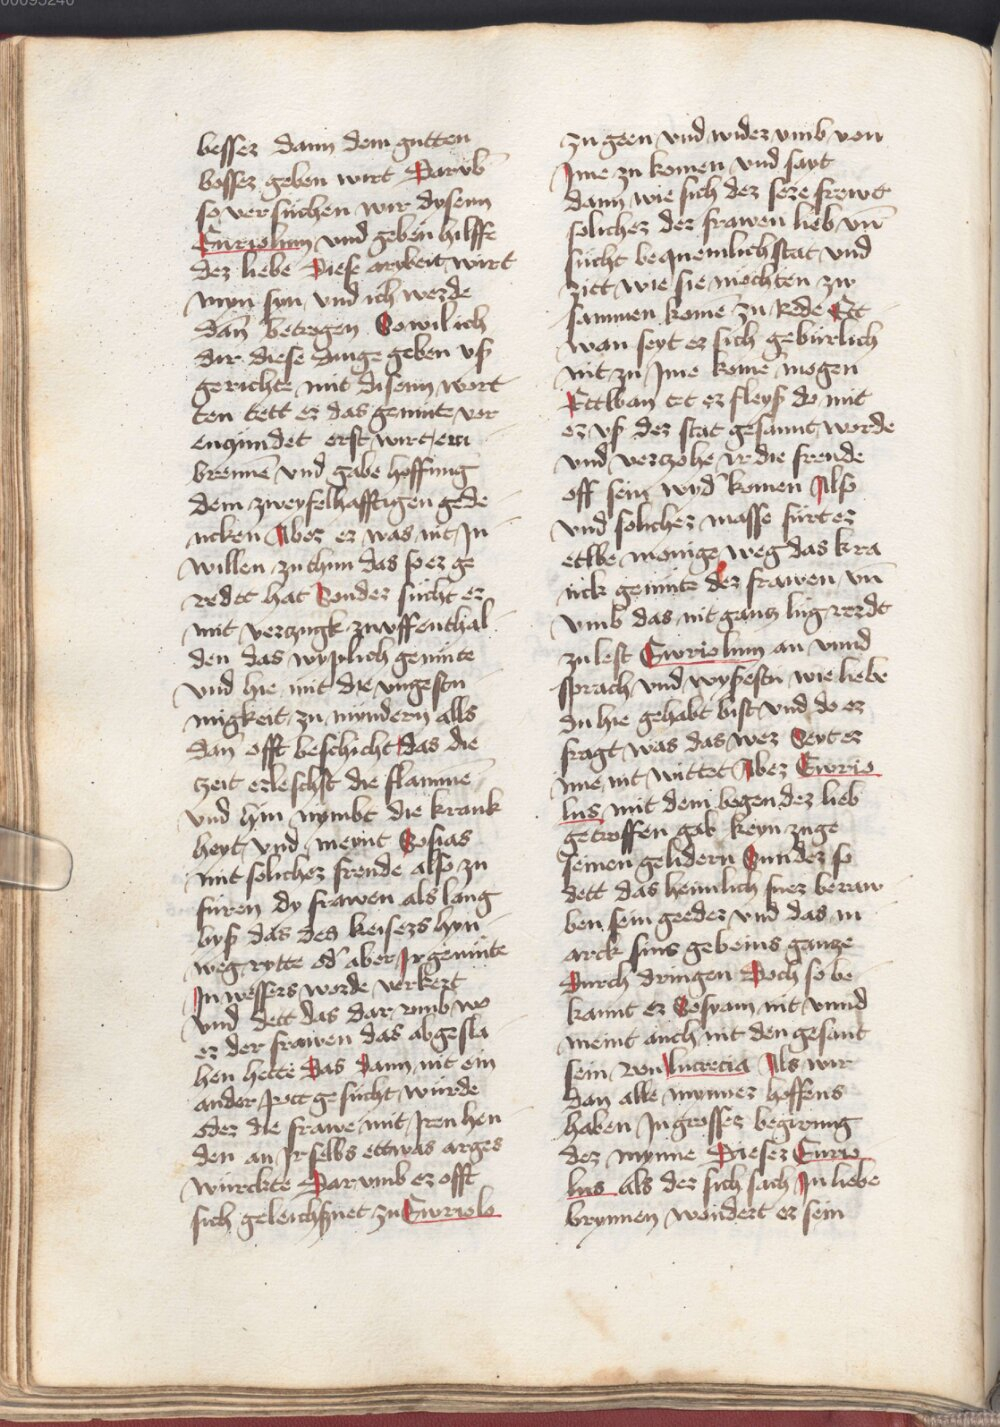 besser dann dem gutten
bosser geben wirt Darvb
so versuchen wir dysenn
Euriolum und geben hilffe
der liebe Diese arybeit wirt
myn syn und ich werde
dan betrogen So wil ich
dir diese dinge geben vß
gerichte mit disenn wort
ten tett er das gemute vor
enczundet erst wirt
brennen und gabe hoffnung
dem zweyfelhafftigen gede
ncken Aber er was nit In
willen zu thun das so er ge
redet hat Sonder sucht er
mit verczugk zwffenthal
den das wyplich gemute
und hie mit die ungestu
migkeit zu myndern alls
dan offt beschicht das die
zeit erleschst die flamme
und hin nymbt die krank
heyt und meynt Sosias
mit solicher freude also zu
furen dy frawen als lang
byß das des keisers hyn
weg rytte od aber Ir gemute
In wessers worde verkert
und dett das dar vmb wo
er der frawen das abgesla
hen hette Das Dann nit ein
ander pott gesucht wurde
oder die frawe mit Iren hen
den an Ir selbs ettwas arges
wurckte Darvmb er offt
sich geleichßnet zu Euriolo
zu geen und wider vmb von
Ime zu komen und sagt
dann wie sich der sere frewt
solicher der frawen lieb vn
sucht bequemlich stat und
zitt wie sie mochten zw
sammen kome zu Rede Ett
wan seyt er sich geburlich
nit zu Ime kome mogen
Ettwan tet er fleyß do mit
er vß der stat gesannt worde
und verczohe Ir die freude
off sein wyd komen Also
und solicher masse furt er
ettbe menige weg das kra
nck gemute der frawen vn
vmb das nit gantz lug redt
zu lest Euriolum an vnnd
sprach und wyßestu wie liebe
du hie gehabt bist und do er
fragt was das wer Seyt er
ime nit wittet Aber Eurio
lus mit dem bogen der lieb
getroffen gab keyn ruge
seinen gelidern Sunder so
dett das heimlich fuer beraw
ben sein geeder und das m
arck sins gebeins gancze
Durch dringen Doch so be
kannt er Sosyam nit vnnd
meint auch nit den gesant
sein von Lucrecia Als wir
dan alle mynner hoffens
haben In grosser begirung
der mynne Dieser Eurio
lus als der sich sach In liebe
brynnen wondert er sein